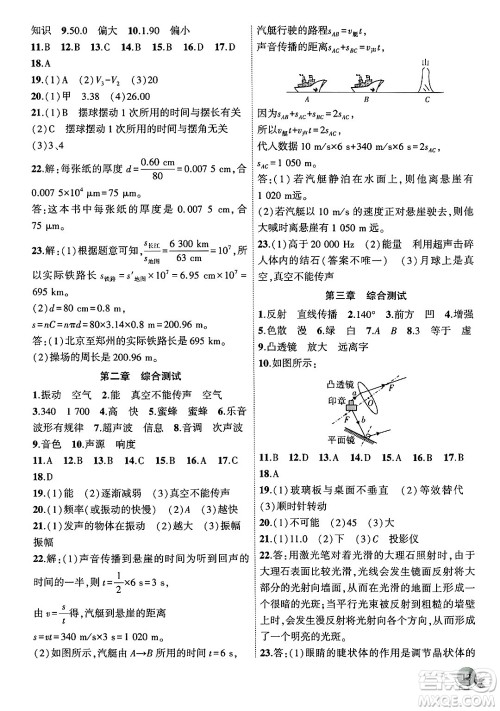 知识 9.50.0 偏大 10.1.90 偏小
11.B 12.B 13.D 14.B 15.B 16.D 17.D
18.A
19.(1)A (2)V₃-V₂ (3)20
20.(1)甲 3.38 (4)26.00
21.(1)B 摆球摆动1次所用的时间与摆长有关
(2)C 摆球摆动1次所用的时间与摆角无关
(3)3、4
22.解:每张纸的厚度 d=0.60 cm/80=0.007 5 cm,合
0.007 5×10⁴ μm=75 μm。
答:这本书中每张纸的厚度为0.007 5 cm,合
75 μm。
23.解:(1)根据题意可知,s长江/s地图=6 300 km/63 cm=10⁷,所
以实际铁路长 s铁路=s′×10⁷=6.95 cm×10⁷=
695 km。
(2)d=80 cm=0.8 m,
s=nC=nπd=100×3.14×0.8 m≈200.96 m。
答:(1)北京至郑州的实际铁路长为695 km。
(2)操场的周长是200.96 m。
第二章 综合测试
1.振动 空气 2.能 真空不能传声
3.340 1 700 4.高 快 5.蜜蜂 蜜蜂 6.乐音
波形有规律 7.超声波 信息 8.音调 次声波
9.音色 10.声源 响度
11.A 12.A 13.C 14.D 15.C 16.C 17.B
18.D
19.(1)能 (2)逐渐减弱 (3)真空不能传声
20.(2)频率(或振动的快慢) (4)越大
21.(1)发声的物体在振动 (2)越大 (3)振幅
振幅
22.解:(1)声音传播到悬崖的时间为所用时
间的一半,则 t=1/2×6 s=3 s,
由 v=s/t 可得,汽艇到悬崖的距离
s=vt=340 m/s×3 s=1 020 m。
(2)如图所示,汽艇由A→B所用时间t=6 s,
汽艇行驶的路程 sAB=v艇t,
声音传播的距离 sAC+sBC=v声t,
山
A B C
因为 sAB+sAC+sBC=2sAC,
所以 v艇t+v声t=2sAC,
代人数据10 m/s×6 s+340 m/s×6 s=2sAC,
sAC=1 050 m。
答:(1)若汽艇静泊在水面上,则它离悬崖有
1 020 m远。
(2)若汽艇以10 m/s的速度正对悬崖驶去,则
它离悬崖有1 050 m。
23.(1)高于20 000 Hz (2)能量 利用超声击碎
人体内的结石(答案不唯一) (3)月球上是真
空,真空不能传声
第三章 综合测试
1.反射 直线传播 2.140° 3.前方 凹 4.增强
5.色散 漫 6.B C A 8.3 6 9.等于 虚
9.凸透镜 放大 远离字
10.如图所示:
凸透镜
印章
平面镜
a
b
F
F
11.B 12.B 13.C 14.D 15.D 16.C 17.B
18.A
19.(1)玻璃板与水平面垂直 (2)等效替代
(3)顺时针转动
20.(1)不可能 (2)45 (3)大
21.(1)11.0 (2)C (3)C 投影仪
22.答:用激光笔对着光滑的大理石照射时,由于
大理石表面非常光滑,光线会发生镜面反射,
形成很强的光斑;对着粗糙的墙壁照射时,
平行光束被反射到粗糙的墙壁上
时,将会发生漫反射向各个方向传播,形成了
一个明亮的光斑。
23.答:(1)眼睛的睫状体的作用是调节晶状体的